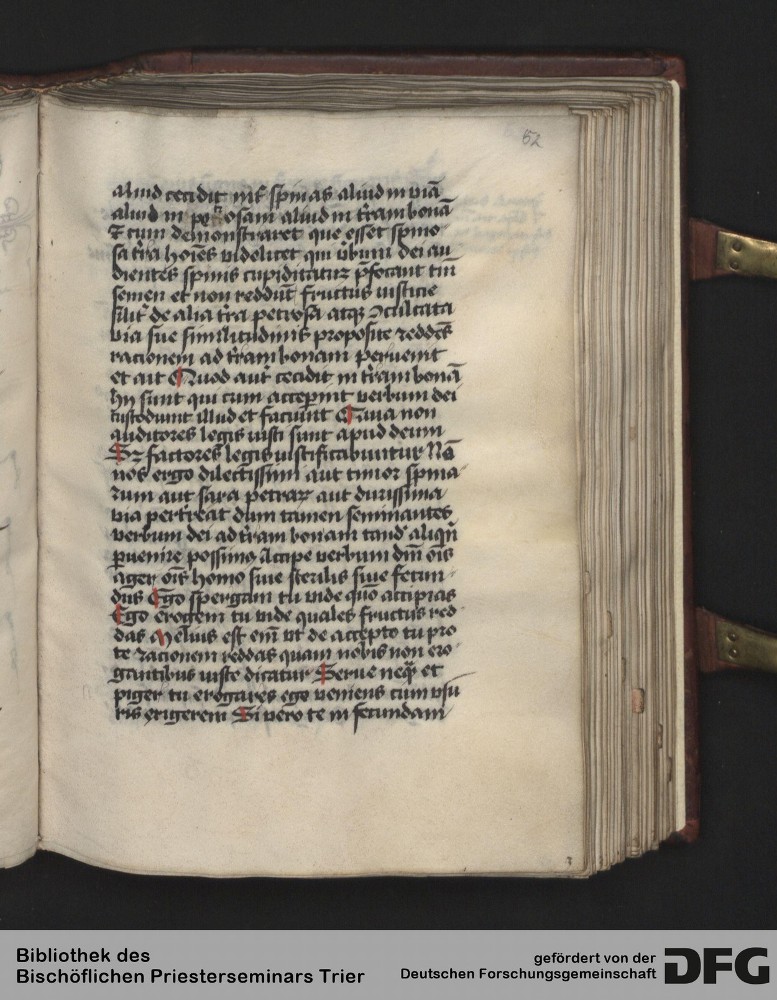 52
aliud cecidit int̄ spinas aliud in viā
aliud in petrosam aliud in t̄ram bonā
Et cum demonstraret que esset spino
sa t̄ra hoīes videlicet qui v̄bum dei au
dientes spinis cupiditatuꝝ p̄focant tm̄
semen et non reddūt fructus iusticie
silit̄ de alia t̄ra petrosa atqꝫ ꝯculcata
via sue similitudinis proposite reddēs
racionem ad t̄ram bonam peruenit
et ait Quod aut̄ cecidit in t̄ram bonā
hii sunt qui cum acceperint verbum dei
custodiunt illud et faciunt Quia non
auditores legis iusti sunt apud deum
Sꝫ factores legis iustificabuntur Nō
nos ergo dilectissimi aut timor spina
rum aut saxa petraꝝ aut durissima
via perterreat dum tamen seminantes
verbum dei ad t̄ram bonam tand̄ aliqn̄
ꝑuenire possimꝰ Accipe verbum dm̄ oīs
ager oīs homo siue sterilis siue fecun
dus Ego spergam tu vide quō accipias
Ego erogem tu vide quales fructus red
das Melius est em̄ vt de accepto tu pro
te racionem reddas quam nobis non ero
gantibus iuste dicatur Serue neqꝫ et
piger tu erogares ego veniens cum vsu
ris exigerem Si vero te in fecundam
3
Bibliothek des
Bischöflichen Priesterseminars Trier
gefördert von der
Deutschen Forschungsgemeinschaft
DFG